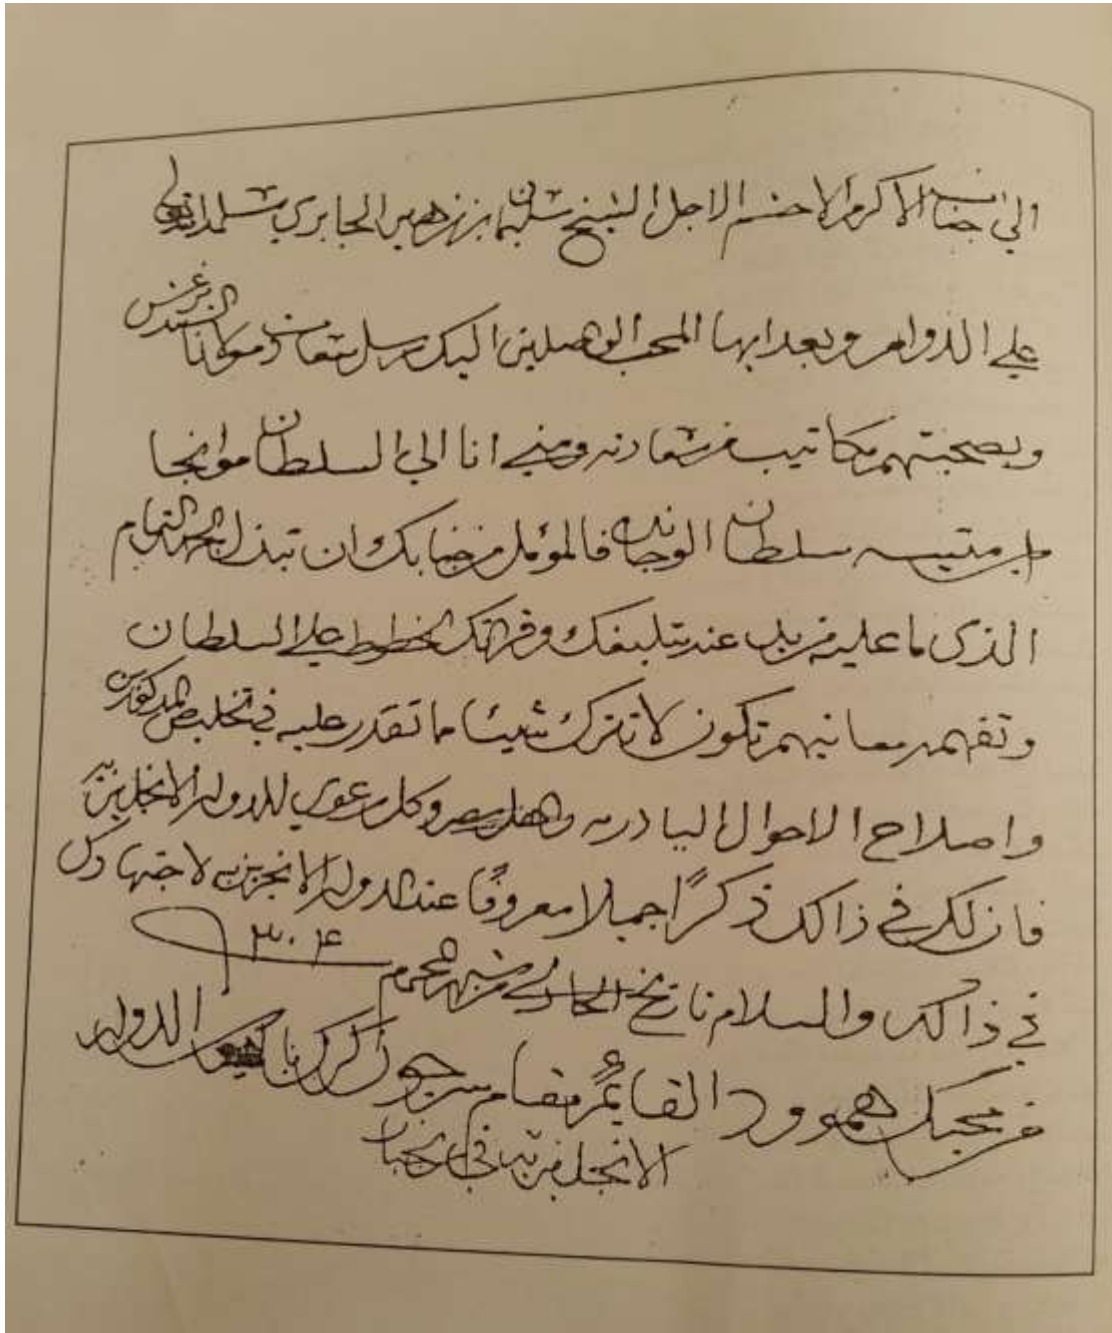 الى جناب الاكرم الاحشم الاجل الشيخ سليمان بن زهير الجابري سلمه الله تعالى
على الدوام وبعد ايها المحب الواصلين اليك رسل سعادة مولانا السيد برغش
وبصحبتهم مكاتيب من سعادته ومني انا الى السلطان موانجا
ابن متيسه سلطان الوجانده فالمؤمل من جنابك ان تبذل الجهد التمام
الذي ما عليه مزيد عند تبليغك وقرائتك الخطوط على السلطان
وتفهمه معانيهم تكون لا تترك شيئا ما تقدر عليه في تخليص المذكورين
واصلاح الاحوال البادريه واهل وكل رعوي للدوله الانجليزيه
فان لك في ذالك ذكرًا جميلا معروفًا عند الدوله الانجريزيه لاجتهادك
في ذالك والسلام تاريخ الحادي من شهر محرم ١٣٠٤
من محبك هموود القائم مقام سرجون كرك الدوله
الانجليزيه في زنجبار